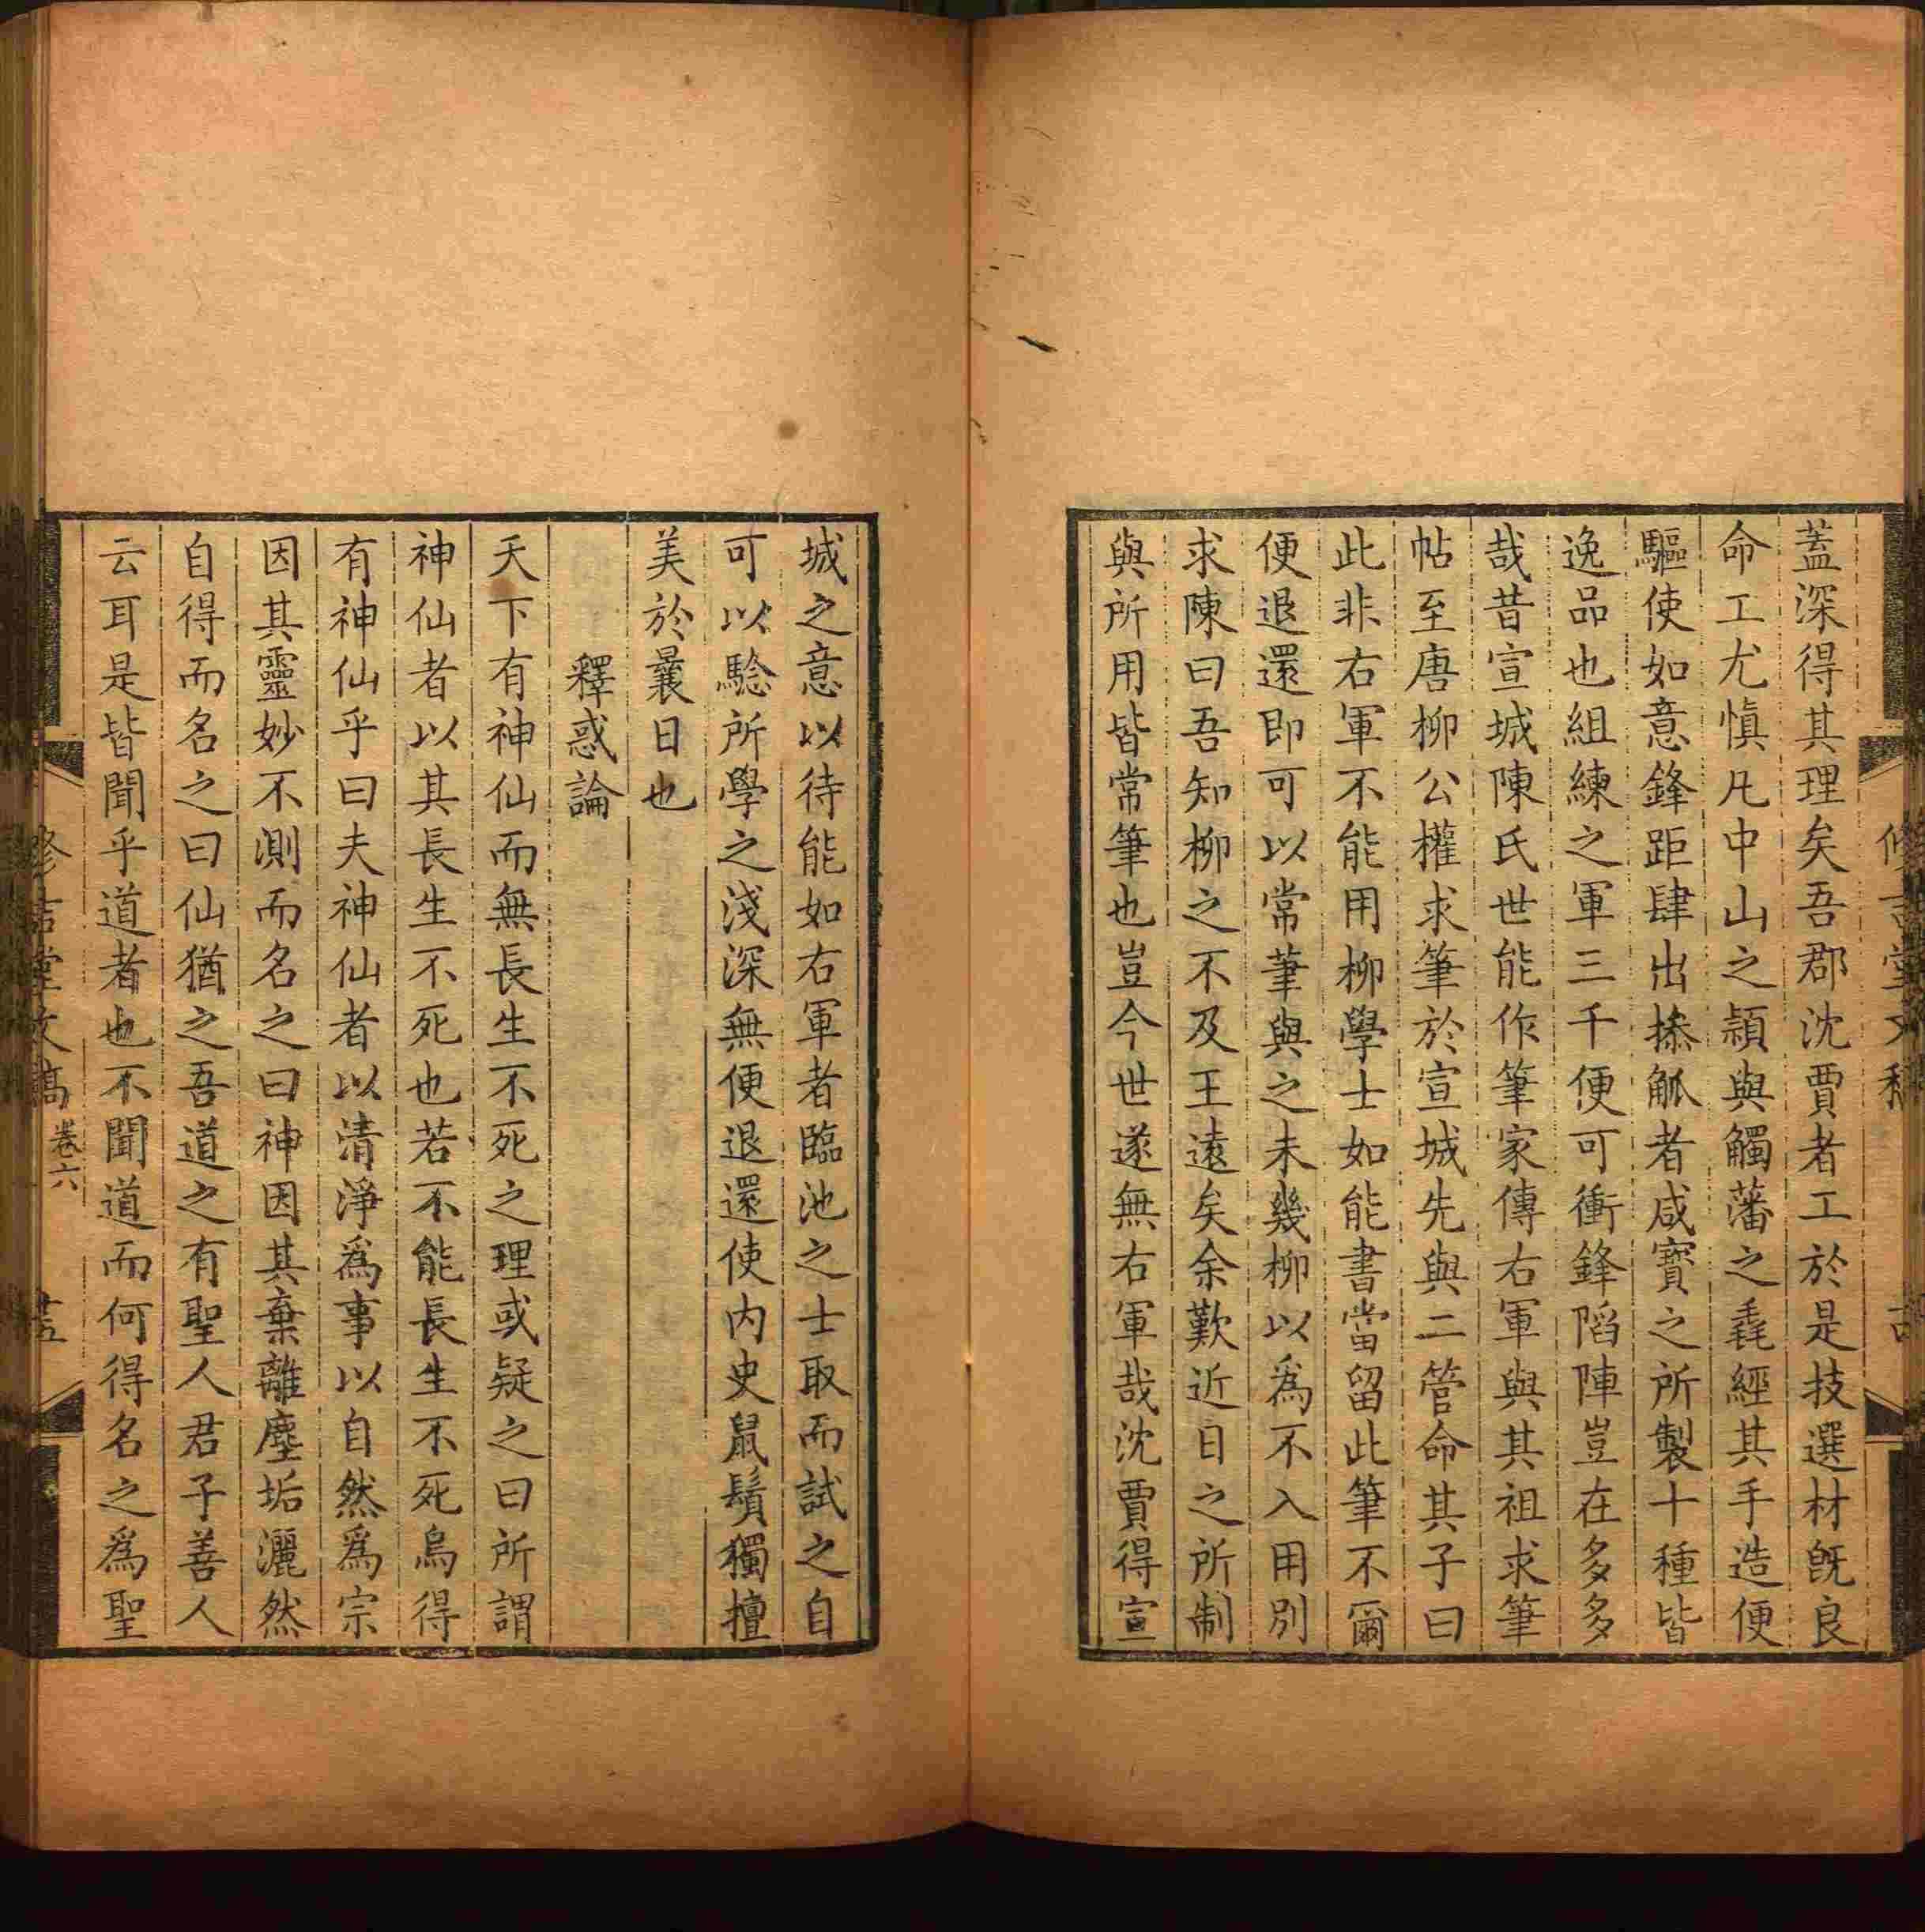 蓋深得其理矣吾郡沈賈者工於是技選材旣良
命工尤愼凡中山之穎與觸藩之毳經其手造便
驅使如意鋒距肆出操觚者咸寶之所製十種皆
逸品也組練之軍三千便可衝鋒陷陣豈在多多
哉昔宣城陳氏世能作筆家傳右軍與其祖求筆
帖至唐柳公權求筆於宣城先與二管命其子曰
此非右軍不能用柳學士如能書當留此筆不爾
便退還即可以常筆與之未幾柳以爲不入用別
求陳曰吾知柳之不及王遠矣余歎近日之所制
與所用皆常筆也豈今世遂無右軍哉沈賈得宣
城之意以待能如右軍者臨池之士取而試之自
可以騐所學之淺深無便退還使内史鼠鬚獨擅
美於曩日也
釋惑論
天下有神仙而無長生不死之理或疑之曰所謂
神仙者以其長生不死也若不能長生不死烏得
有神仙乎曰夫神仙者以清淨爲事以自然爲宗
因其靈妙不測而名之曰神因其棄離塵垢灑然
自得而名之曰仙猶之吾道之有聖人君子善人
云耳是皆聞乎道者也不聞道而何得名之爲聖
卷六